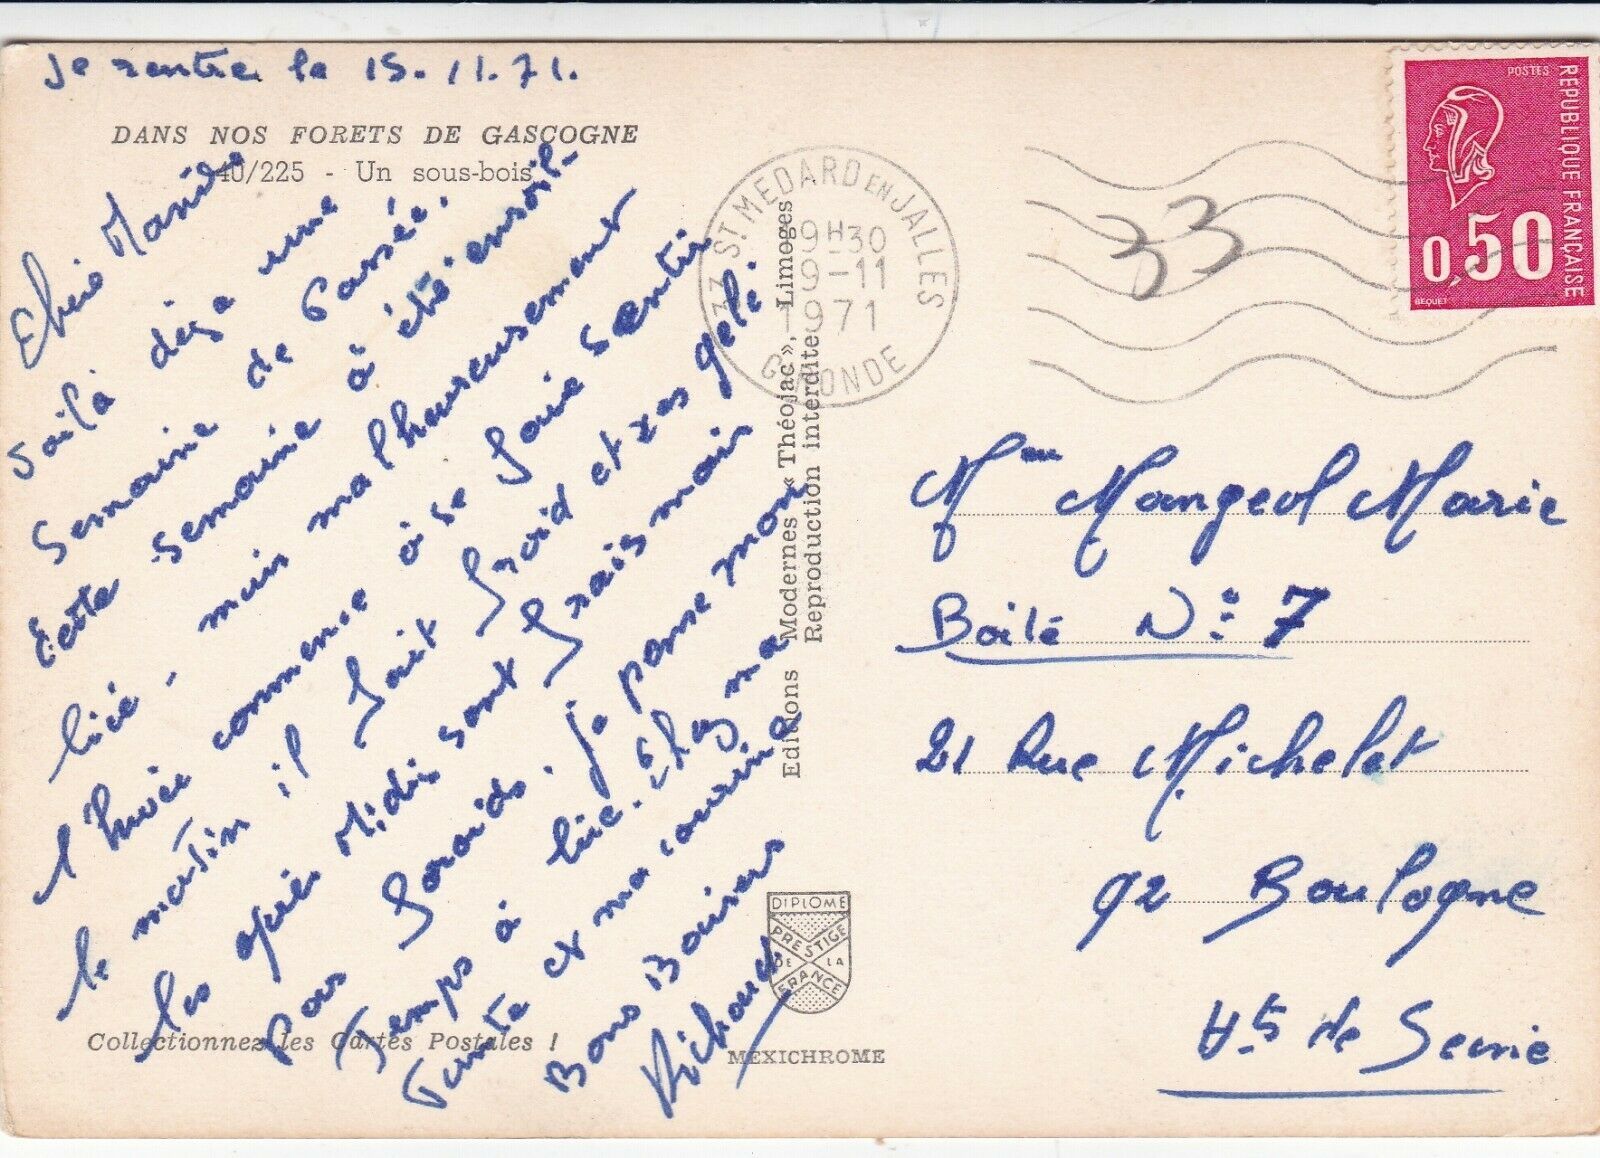 Je rentre le 15.11.71.
DANS NOS FORETS DE GASCOGNE
40/225 - Un sous-bois
Chere
Voilà deja une
Semaine de Passée.
Cette semaine à été ensoleil-
lée - mais malheureusement
l'hiver commence à se faire sentir
le matin il fait froid et ças gele.
les après Midis sont frais mais
Pas froids. je passe mon
Temps à lire. chez ma
Tante et ma cousine
Bons Baisers
Collectionnez les Cartes Postales !
Editions Modernes « Théojac », Limoges
Reproduction interdite
DIPLOME
PRESTIGE
DE LA
FRANCE
MEXICHROME
33 ST. MEDARD EN JALLES
9H30
9-11
1971
GIRONDE
33
POSTES
REPUBLIQUE FRANÇAISE
0,50
BEQUET
Mme Mangeol Marie
Boite N° 7
21 Rue Michelet
92 Boulogne
Hts de Seine